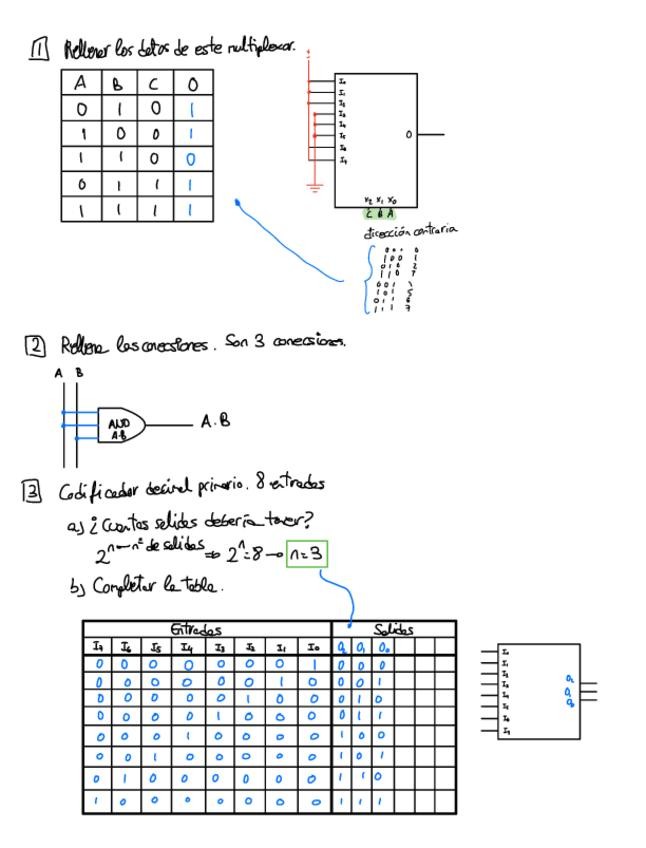 1 Rellenar los datos de este multiplexor.
A B C O
0 1 0 1
1 0 0 1
1 1 0 0
0 1 1 1
1 1 1 1
I₀
I₁
I₂
I₃
I₄
I₅
I₆
I₇
O
X₂ X₁ X₀
C B A
dirección contraria
0 0 0 0
1 0 0 1
0 1 0 2
1 1 0
0 0 1
1 0 1 5
0 1 1 6
1 1 1 7
2 Rellena las conexiones. Son 3 conexiones.
A B
AND
A·B
A·B
3 Codificador decimal primario. 8 entradas
a) ¿Cuantas salidas debería tener?
2ⁿ → nº de salidas ⇒ 2ⁿ=8 → n=3
b) Completar la tabla.
Entradas Salidas
I₇ I₆ I₅ I₄ I₃ I₂ I₁ I₀ O₂ O₁ O₀
0 0 0 0 0 0 0 1 0 0 0
0 0 0 0 0 0 1 0 0 0 1
0 0 0 0 0 1 0 0 0 1 0
0 0 0 0 1 0 0 0 0 1 1
0 0 0 1 0 0 0 0 1 0 0
0 0 1 0 0 0 0 0 1 0 1
0 1 0 0 0 0 0 0 1 1 0
1 0 0 0 0 0 0 0 1 1 1
I₀
I₁
I₂
I₃
I₄
I₅
I₆
I₇
O₂
O₁
O₀